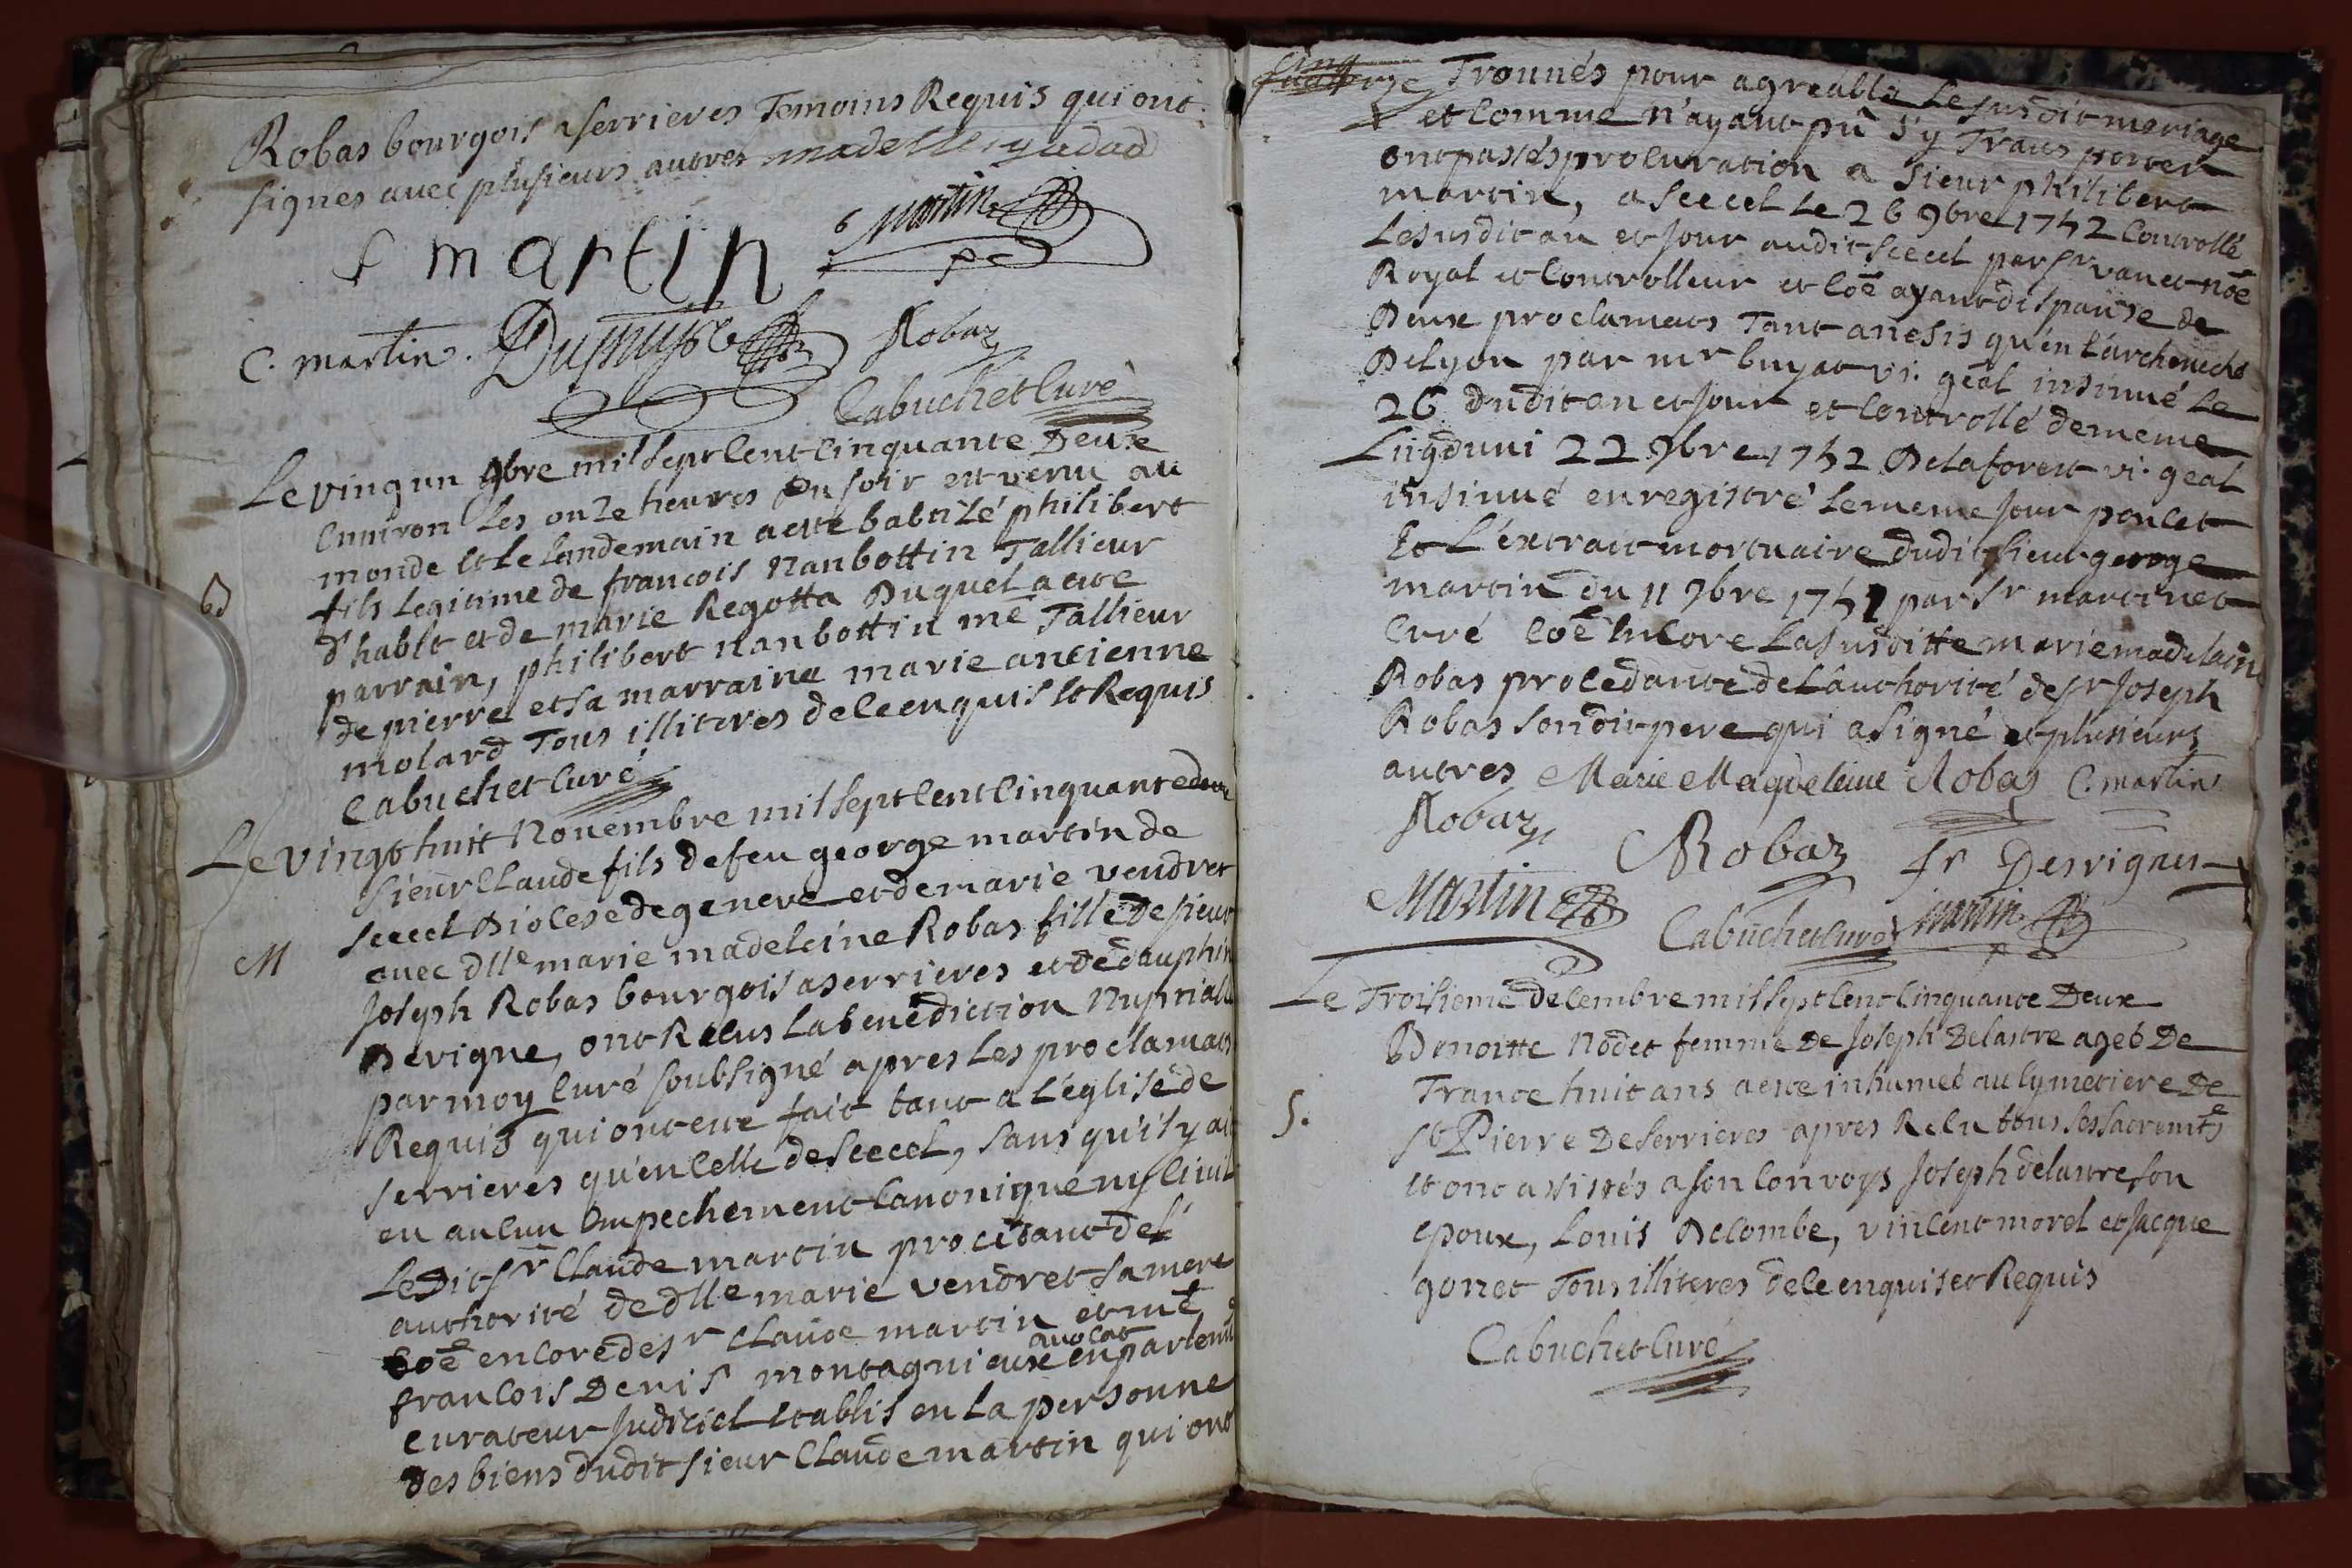 Robas bourgois a serrieres Temoins Requis qui ont
signes avec plusieurs autres
f martin Martin
C. martin. Dupuys Robaz
Cabuchet Curé
Le vingun 9bre mil sept Cent Cinquante Deux
Environ Les onze heures Du soir est venu au
monde et le landemain a ette babtizé philibert
B
fils Legitime de francois Nanbottin Tallieur
d'habit et de marie Regotta Duquel a ette
parrain, philibert nanbottin me Tallieur
de pierre et sa marraine marie ancienne
molard Tous illiteres de le enquis et Requis
Cabuchet Curé
Le vingt huit Novembre mil sept Cent Cinquante deux
sieur Claude fils de feu george martin de
seecel Diocese de geneve et de marie vendret
M
avec dlle marie madeleine Robas fille De sieur
Joseph Robas bourgois a serrieres et de dauphin
Devigne, ont Recus La benediction Nuptiale
par moy Curé soubsigné apres Les proclamaõs
Requis qui ont ette fait tant a L'église de
serrieres qu'en Celle de seecel, sans qu'il y ai
eu aucun Empechement Canonique ny Civil
Le Dit sr Claude martin procedant de L'
authorité de dlle marie vendret sa mere
Coē encore de sr Claude martin et me
avocat
francois Denis montagnieux en parlem
Curateur Judiciel etablis en La personne
Des biens dudit sieur Claude martin qui ont
Trouvés pour agreable Le susdit mariage
et Comme n'ayant pû s'y Transporter
ont passés procuration a sieur philibert
martin, a seecel Le 26 9bre 1752 Controllé
Le susdit an et Jour audit seecel par sr vanet noē
Royal et Controlleur et Coē ayant dispanse de
Deux proclamaõs Tant anesis qu'en L'archeveché
De Lyon par mr buyat vi. geāl insinué Le
26 dudit an et Jour et Controllé de meme
Lugduni 22 9bre 1752 Delaforest vi. geāl
insinué enregistré Le meme Jour poncet
Et L'extrait mortuaire dudit sieur george
martin du 11 9bre 1751 par Sr martinet
Curé Coē Encore La susditte marie madelaine
Robas procedante de L'authorité de sr Joseph
Robas son dit pere qui a signé et plusieurs
autres Marie Magdeleine Robas C. martin
Robaz Robaz fr Desvignes
Martin Cabuchet Curé martin
Le Troisieme decembre mil sept Cent Cinquante Deux
Benoitte Nodet femme De Joseph Delastre ageé De
Trante huit ans a ette inhumeé au Cymetiere De
S.
St Pierre De Serrieres apres Recu tous ses sacremts
et ont assistés a son Convoys Joseph delastre son
Epoux, Louis Decombe, vincent morel et Jacque
gonet Tous illiteres de le enquis et Requis
Cabuchet Curé